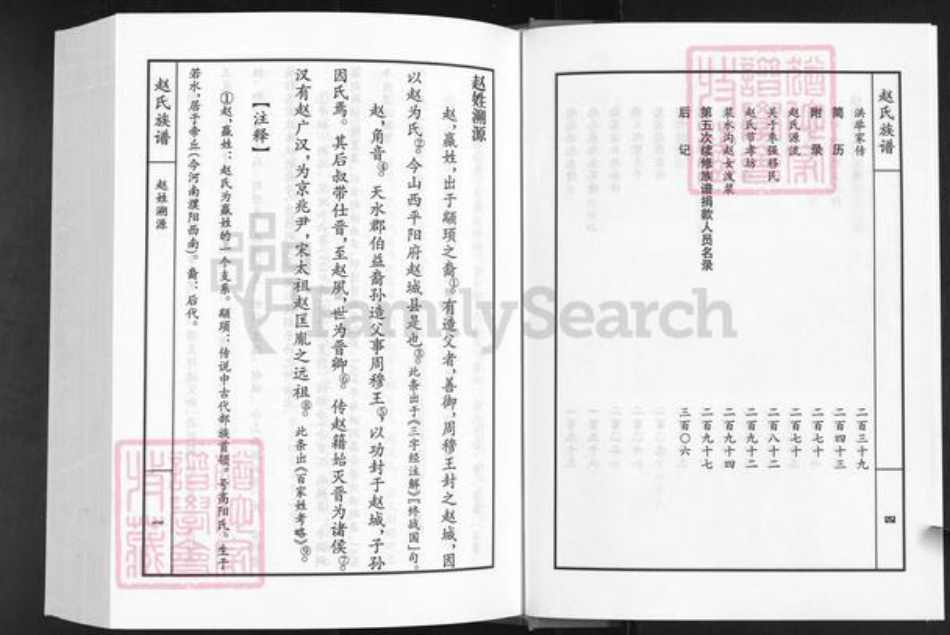 赵氏族谱
四
洪举家传 二百三十九
简历 二百四十三
附录 二百七十
赵氏源流 二百七十
关于枣强移民 二百八十二
赵氏节孝坊 二百九十二
浆水沟赵女泼浆 二百九十四
第五次续修族谱捐款人员名录 二百九十七
后记 三百〇六
赵姓溯源
赵，嬴姓，出于颛顼之裔①。有造父者，善御，周穆王封之赵城，因
以赵为氏②。今山西平阳府赵城县是也③。此条出于《三字经注解》〖终战国〗句。
赵，角音④。天水郡伯益裔孙造父事周穆王⑤，以功封于赵城，子孙
因氏焉。其后叔带仕晋，至赵夙，世为晋卿⑥。传赵籍始灭晋为诸侯⑦。
汉有赵广汉，为京兆尹，宋太祖赵匡胤之远祖⑧。此条出《百家姓考略》⑨。
【注释】
①赵，嬴姓：赵氏为嬴姓的一个支系。颛顼：传说中古代部族首领。号高阳氏。生于
若水，居于帝丘（今河南濮阳西南）。裔：后代。
赵氏族谱
赵姓溯源
一
FamilySearch